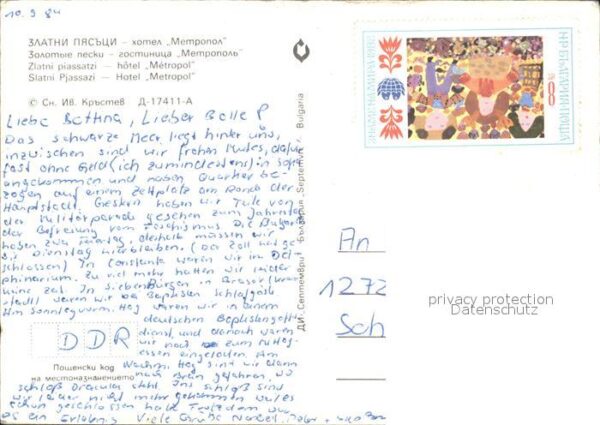 10.9.84
ЗЛАТНИ ПЯСЪЦИ – хотел „Метропол"
Золотые пески – гостиница „Метрополь"
Zlatni piassatzi – hôtel „Métropol"
Slatni Pjassazi – Hotel „Metropol"
© Сн. Ив. Кръстев Д-17411-А
Liebe Bettina, Lieber Bolle P
Das schwarze Meer liegt hinter uns,
inzwischen sind wir frohen Mutes, dafür
fast ohne Geld (ich zumindestens) in Sofia
angekommen und haben Quartier be-
zogen auf einem Zeltplatz am Rande der
Hauptstadt. Gestern haben wir Teile von
der Militärparade gesehen zum Jahrestag
der Befreiung vom Faschismus. Die Bulgaren
haben zwei Feiertag, deshalb müssen wir
bis Dienstag hierbleiben. (Der Zoll hat ge-
schlossen) In Constanta waren wir im Del
phinarium. Zu viel mehr hatten wir leider
keine Zeit. In Siebenbürgen in Brasov (Kron
stadt) waren wir bei Baptisten Schlafgäste
Am Sonntagvorm. Hag waren wir in einem
deutschen Baptistengotte
dienst, und danach waren
wir noch zum Mittag-
essen eingeladen. Am
Nachm. Hag sind wir dann
nach Bran gefahren, wo
Schloß Draculas steht. Ins Schloß sind
wir leider nicht mehr gekommen weil es
schon geschlossen hatte Trotzdem war
es ein Erlebnis Viele Grüße
DDR
Пощенски код
на местоназначението
ДИ „Септември" България „Septemvri" Bulgaria
НР БЪЛГАРИЯ ПОЩА
8
An
1272
Sch
privacy protection
Datenschutz